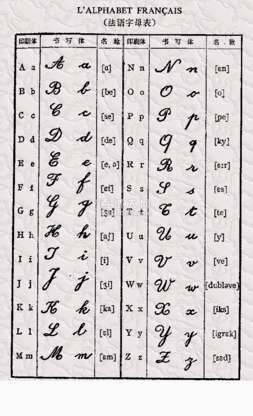 L'ALPHABET FRANÇAIS
（法语字母表）
印刷体 书写体 名称 印刷体 书写体 名称
A a A a [a] N n N n [ɛn]
B b B b [be] O o O o [o]
C c C c [se] P p P p [pe]
D d D d [de] Q q Q q [ky]
E e E e [e, ə] R r R r [ɛ:r]
F f F f [ɛf] S s S s [ɛs]
G g G g [ʒe] T t T t [te]
H h H h [aʃ] U u U u [y]
I i I i [i] V v V v [ve]
J j J j [ʒi] W w W w [dubləve]
K k K k [ka] X x X x [iks]
L l L l [ɛl] Y y Y y [igrɛk]
M m M m [ɛm] Z z Z z [zɛd]